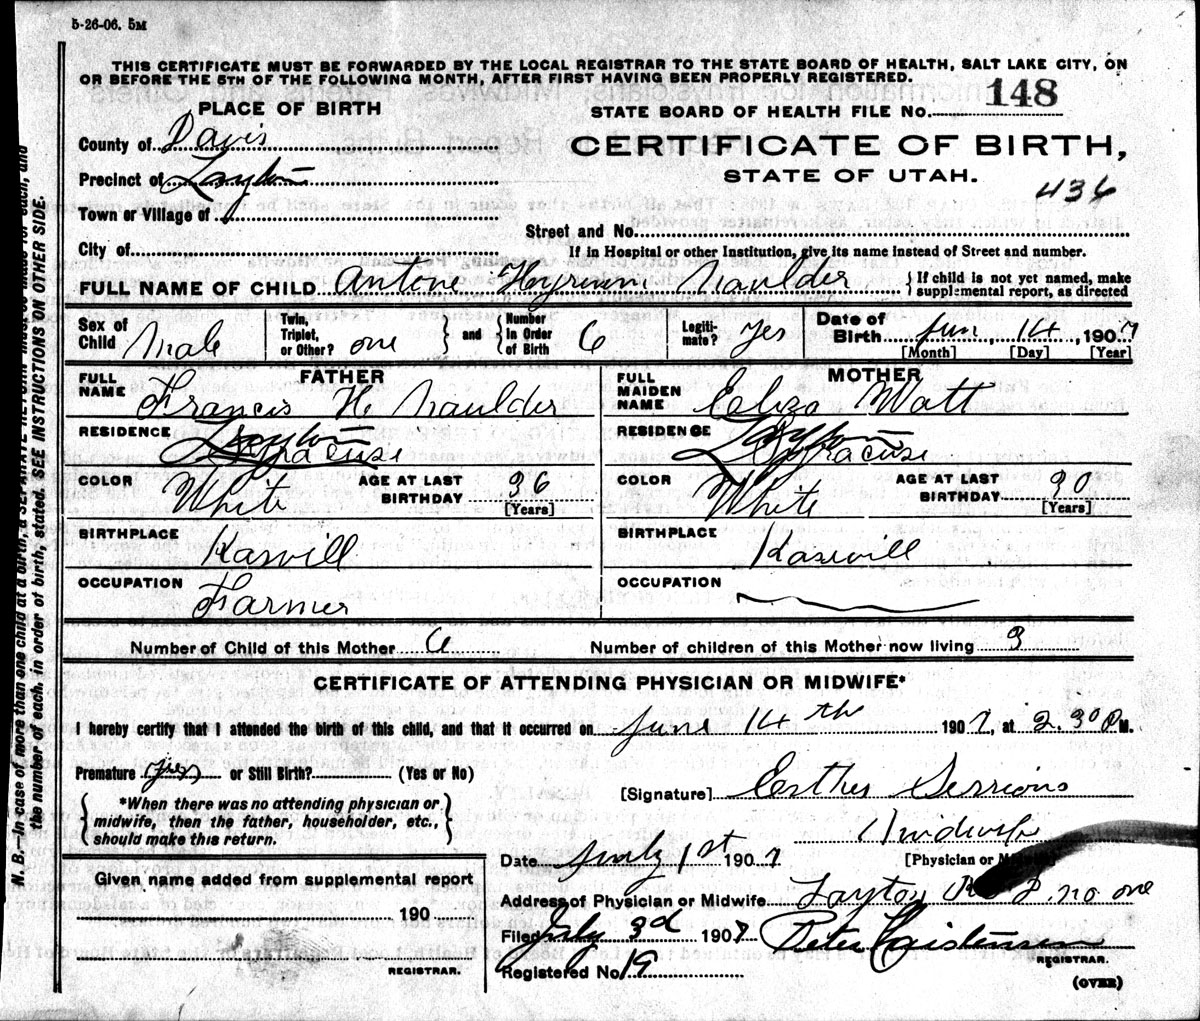 5-26-06. 5M
THIS CERTIFICATE MUST BE FORWARDED BY THE LOCAL REGISTRAR TO THE STATE BOARD OF HEALTH, SALT LAKE CITY, ON
OR BEFORE THE 5TH OF THE FOLLOWING MONTH, AFTER FIRST HAVING BEEN PROPERLY REGISTERED.
PLACE OF BIRTH
STATE BOARD OF HEALTH FILE No. 148
County of Davis
CERTIFICATE OF BIRTH,
Precinct of Layton
STATE OF UTAH.
436
Town or Village of
Street and No.
City of
If in Hospital or other Institution, give its name instead of Street and number.
FULL NAME OF CHILD Antone Naulder { If child is not yet named, make
supplemental report, as directed
Sex of Child Male Twin, Triplet, or Other? one } and { Number In Order of Birth 6 Legiti-mate? Yes Date of Birth Jun, 14, 1907
[Month] [Day] [Year]
FATHER
MOTHER
FULL NAME Francis H Naulder
FULL MAIDEN NAME Eliza Watt
RESIDENCE Layton Syracuse
RESIDENCE Layton Syracuse
COLOR White AGE AT LAST BIRTHDAY 36 [Years]
COLOR White AGE AT LAST BIRTHDAY 30 [Years]
BIRTHPLACE Kasvill
BIRTHPLACE Kasvill
OCCUPATION Farmer
OCCUPATION
Number of Child of this Mother 6 Number of children of this Mother now living 3
CERTIFICATE OF ATTENDING PHYSICIAN OR MIDWIFE*
I hereby certify that I attended the birth of this child, and that it occurred on June 14th 1907, at 2.30 P M.
Premature (yes) or Still Birth? (Yes or No)
[Signature] Esther Sessions
{ *When there was no attending physician or
midwife, then the father, householder, etc.,
should make this return. }
Midwife
Date July 1st 1907
[Physician or M
Given name added from supplemental report
Address of Physician or Midwife Layton R D. no one
190
Filed July 3d 1907 Peter Christensen
REGISTRAR.
REGISTRAR.
Registered No. 19
(OVER)
N. B.—In case of more than one child at a birth, a SEPARATE RETURN must be made for each, and
the number of each, in order of birth, stated. SEE INSTRUCTIONS ON OTHER SIDE.